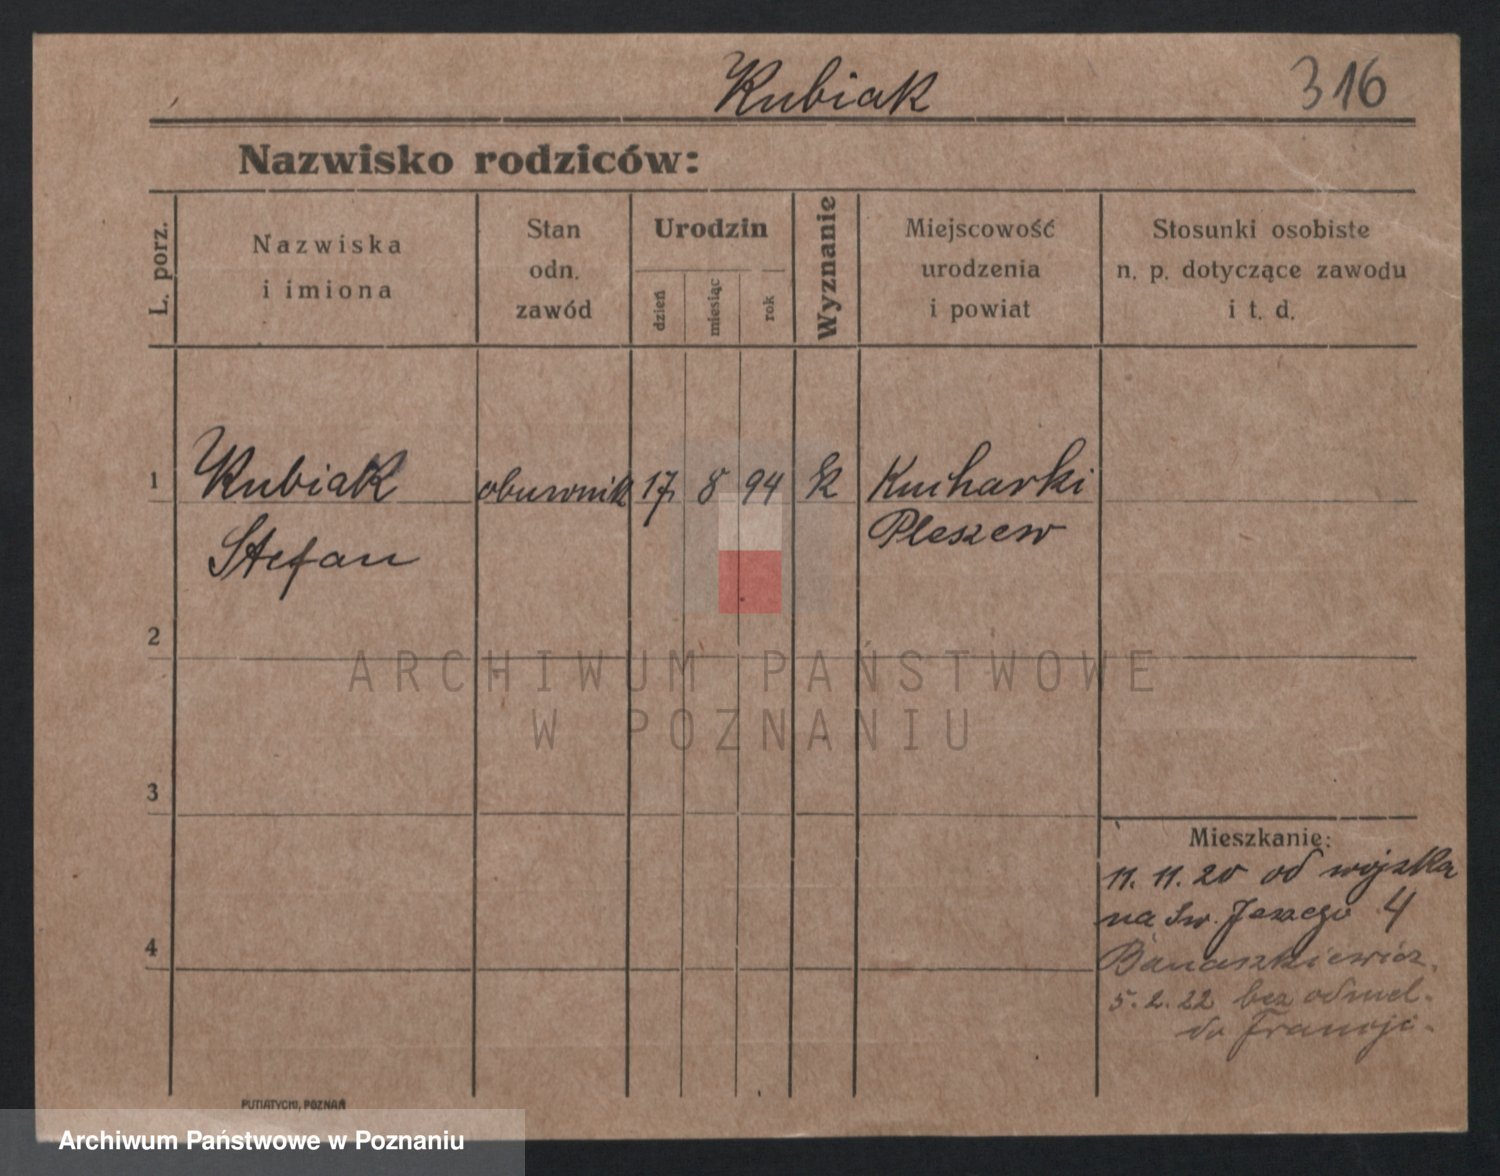 Kubiak
316
Nazwisko rodziców:
L. porz.
Nazwiska
i imiona
Stan
odn.
zawód
Urodzin
dzień
miesiąc
rok
Wyznanie
Miejscowość
urodzenia
i powiat
Stosunki osobiste
n. p. dotyczące zawodu
i t. d.
1
Kubiak
Stefan
obuwnik
17
8
94
k
Kucharki
Pleszew
2
ARCHIWUM PAŃSTWOWE
W POZNANIU
3
Mieszkanie:
11. 11. 20 od wojska
na Św. 4
4
Banaszkiewicz.
5. 2. 22 bez odmel.
do Francji.
PUTIATYCKI, POZNAŃ
Archiwum Państwowe w Poznaniu